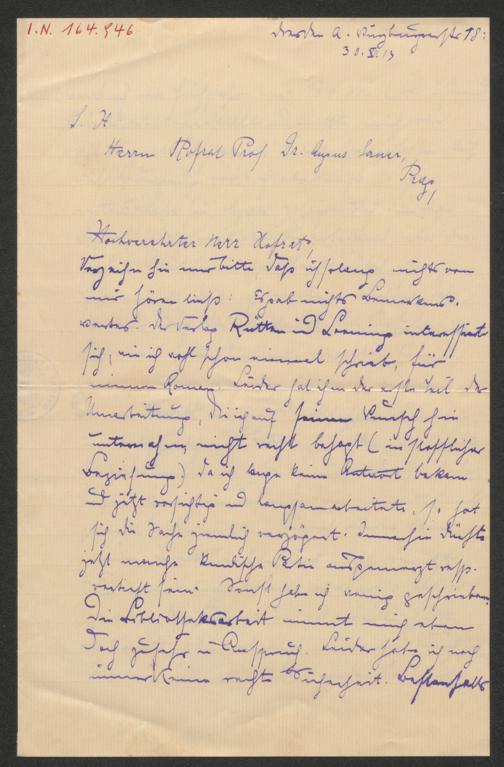 I.N. 164.946
Dresden A. Augsburgerstr 78:
30.XI.13
S. H.
Herrn Hofrat Prof. Dr. August Sauer,
Prag,
Hochverehrter Herr Hofrat,
Verzeihn Sie nur bitte daß ich so lang nichts von
mir hören ließ: Es gab nichts Bemerkens-
wertes. Der Verlag Rütten und Loening interessiert
sich, wie ich wohl schon einmal schrieb, für
meinen Roman. Leider hat ihm der erste Teil der
Umarbeitung, die ich auf seinen Wunsch hin
unternahm, nicht recht behagt (in stofflicher
Beziehung) da ich lange keine Antwort bekam
und jetzt vorsichtig und langsam arbeitete, so hat
sich die Sache ziemlich verzögert. Immerhin dürfte
jetzt manche kindische Partie ausgemerzt resp.
vertieft sein. Sonst habe ich wenig geschrieben.
Die Bibliotheksarbeit nimmt mich eben
doch zu sehr in Anspruch. Leider habe ich noch
immer keine rechte Sicherheit. Bestenfalls